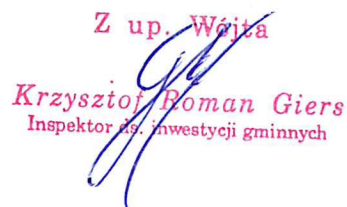 Z up. Wójta
Krzysztof Roman Giers
Inspektor ds. inwestycji gminnych